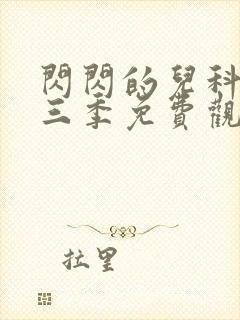 閃閃的兒科
三季免費觀
拉里